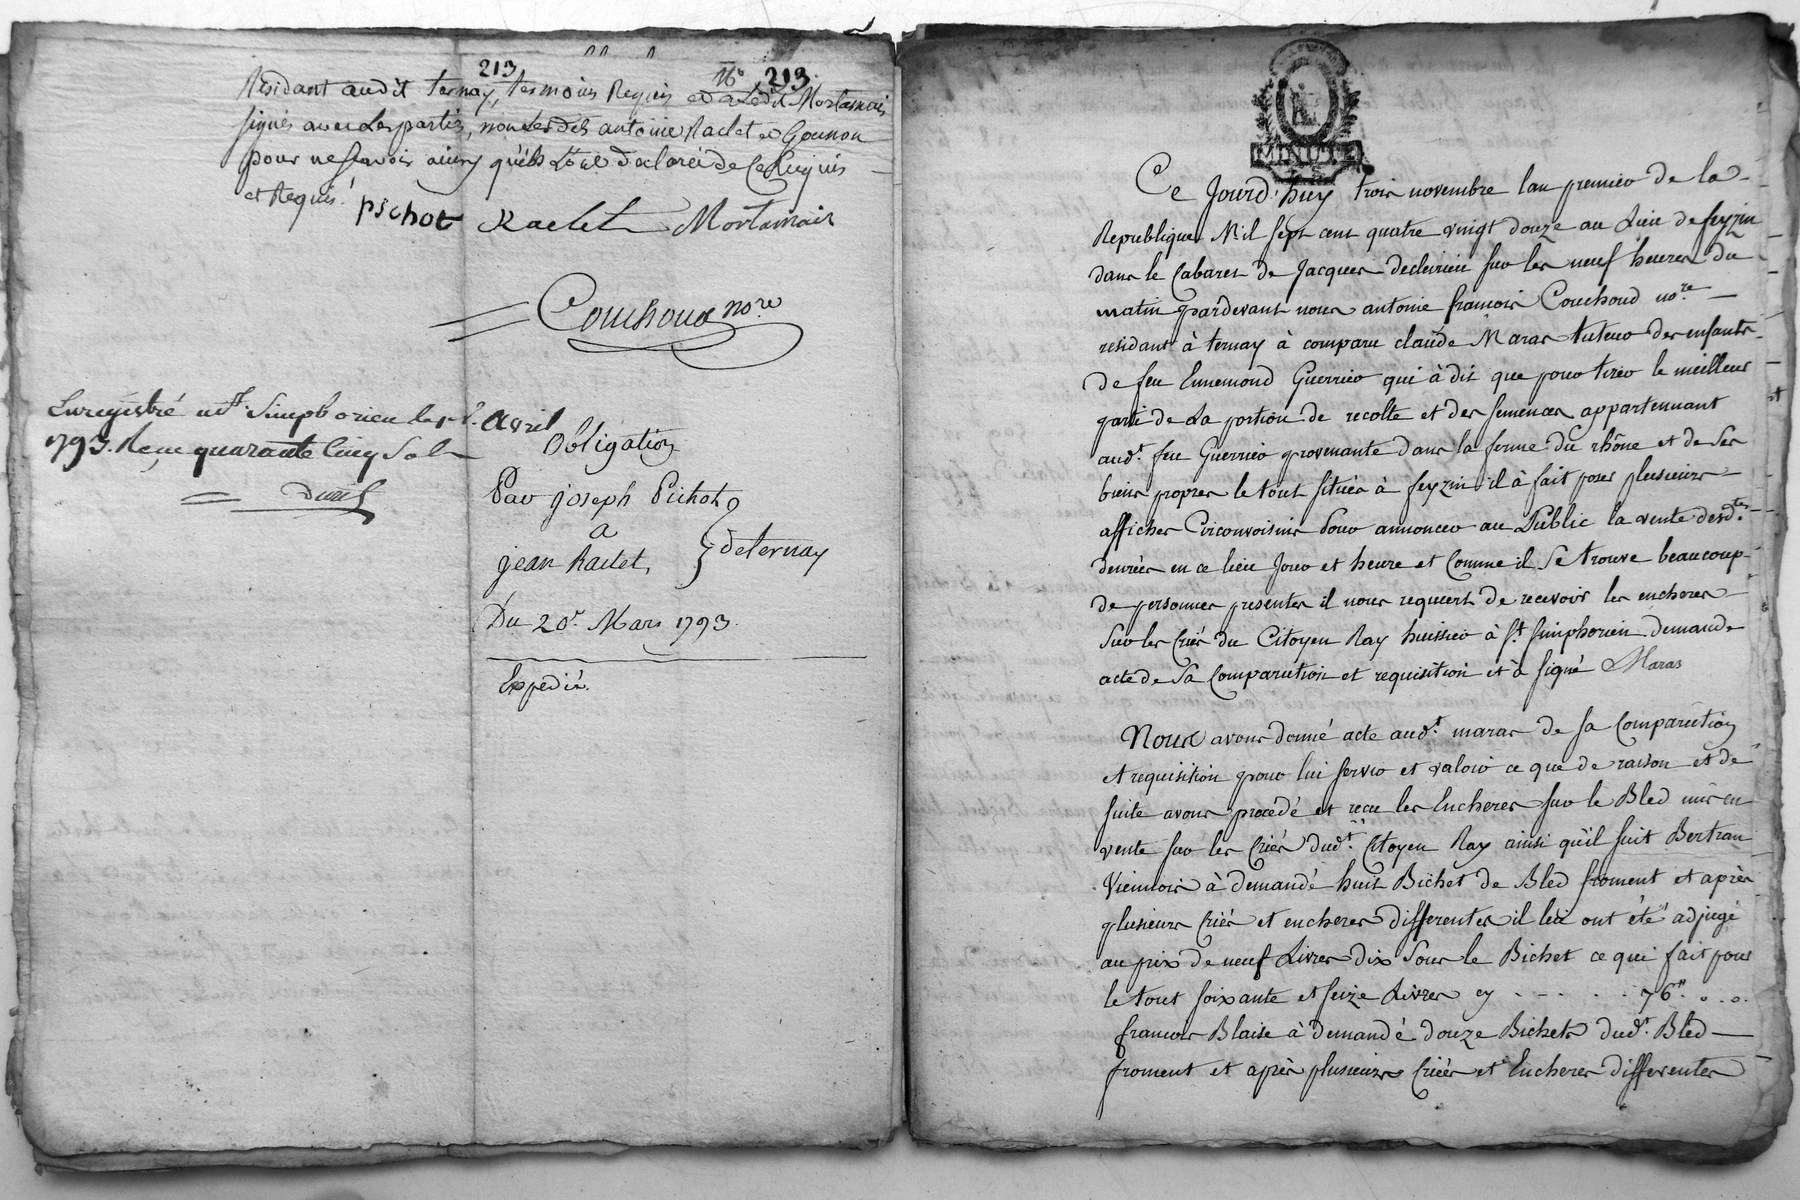 213 N.º 213.
Residant audit ternay, temoins Requis et Ledit Mortamais
signés avec Les parties, non Lesdits antoine Raclet et Gounon
pour ne sçavoir ainsy qu'ils L'ont déclaré de Ce Enquis
et Requis.
pichot Raclet Mortamais
Couchoud no.re
Enregistré a St. Simphorien le 1.r avril
1793. Reçu quarante Cinq Sols
Obligation
Par joseph Pichot
a
jean Raclet,
de ternay
Du 20.e Mars 1793.
Expedié.
MINUTE
Ce Jourd'huy trois novembre l'an premier de la
Republique Mil sept cent quatre vingt douze au Lieu de feyzin
dans le Cabaret de Jacques declerieu sur les neuf heures du
matin pardevant nous antoine francois Couchoud no.re
residant à ternay à comparu claude Maras tuteur des enfants
de feu Ennemond Guerrier qui à dit que pour tirer le meilleur
parti de La portion de recolte et des semences appartenant
aud.t feu Guerrier provenante dans la ferme du rhône et de ses
biens propres le tout située à feyzin il à fait poser plusieurs
affiches Circonvoisins Pour annoncer au Public la vente desd.tes
denrées en ce lieu Jour et heure et Comme il Se trouve beaucoup
de personnes presentes il nous requiert de recevoir les encheres
Sur les Criés du Citoyen Ray huissier à S.t Simphorien demande
acte de Sa Comparution et requisition et à signé Maras
Nous avons donné acte aud.t maras de sa Comparution
et requisition pour lui servir et valoir ce que de raison et de
suite avons procédé et reçu les Encheres sur le Bled mis en
vente sur les Criés dud.t Citoyen Ray ainsi qu'il suit Bertran
Viennois à demandé huit Bichet de Bled froment et après
plusieurs Criés et encheres differentes il lui ont été adjugé
au prix de neuf Livres dix Sous le Bichet ce qui fait pour
le tout soixante et seize Livres cy . . . . . 76.ll . o . o.
francois Blaise à demandé douze Bichets dud.t Bled
froment et après plusieurs Criées et Encheres differentes